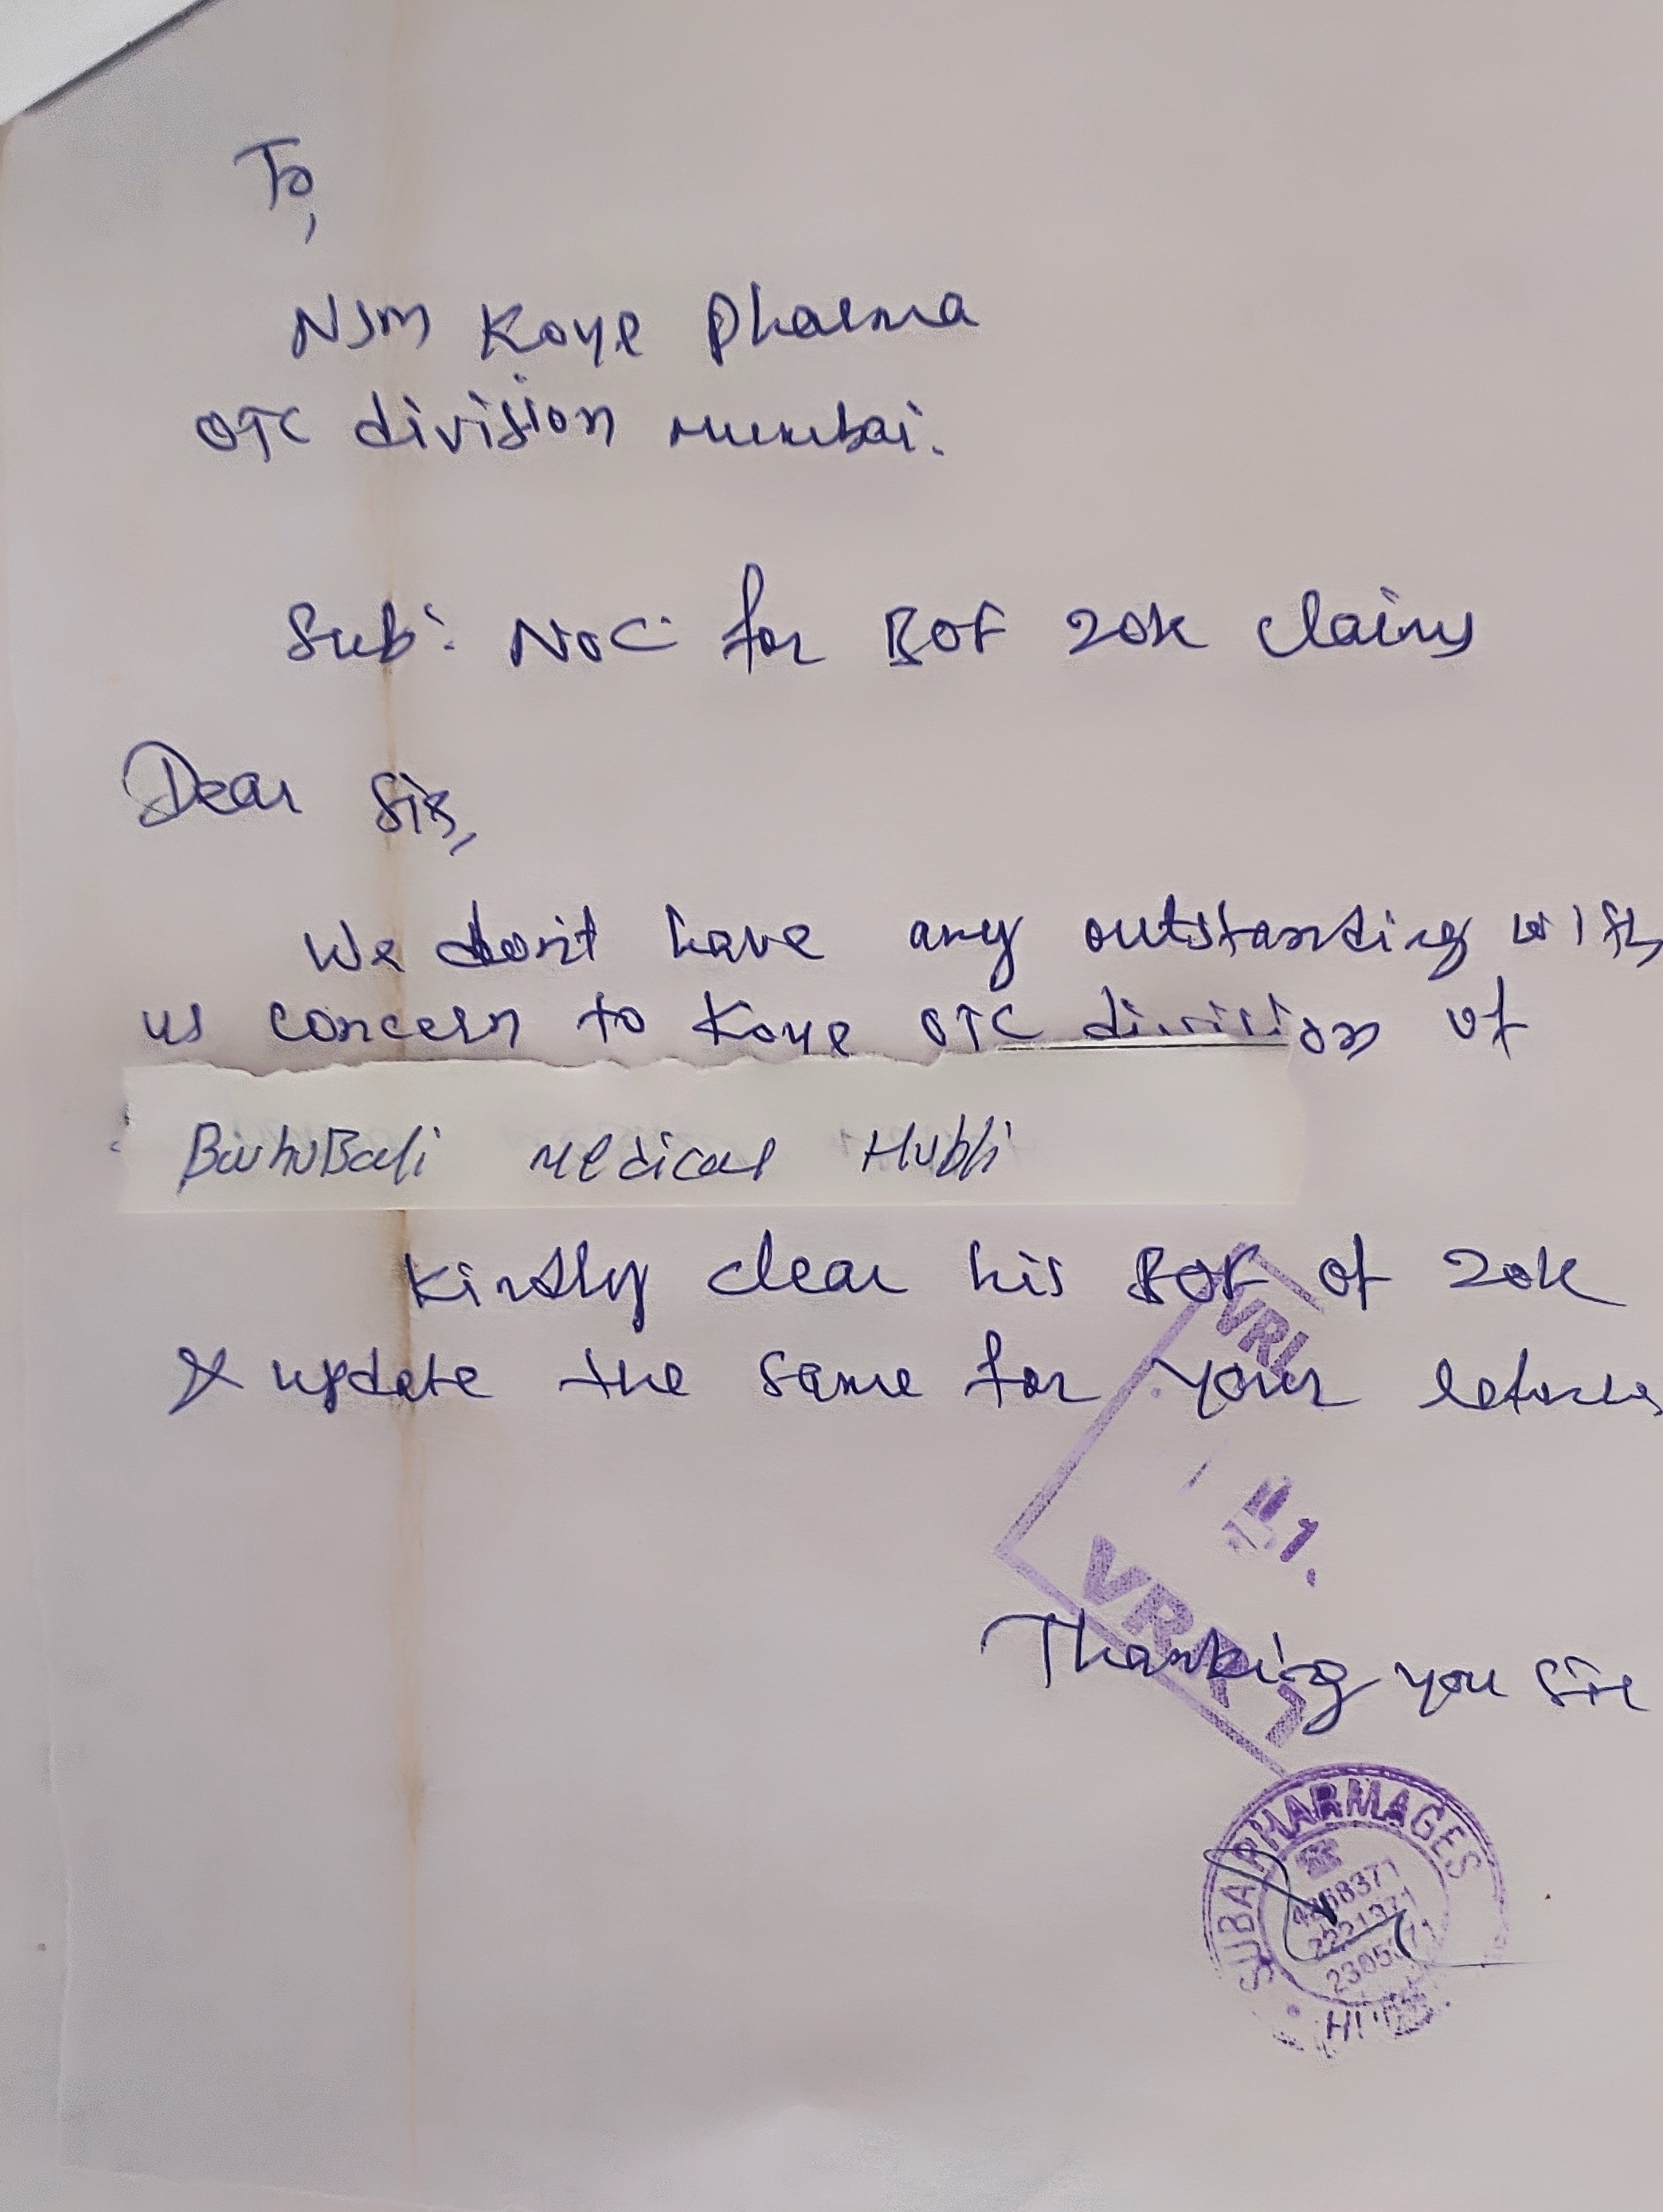 To,
NSM Koye Pharma
OTC division Mumbai.
Sub: NOC for BOF 20k claims
Dear Sir,
We don't have any outstanding with
us concern to Koye OTC division of
BahuBali Medical Hubli
Kindly clear his BOF of 20k
& update the same for your
VRL
Thanking you Sir
SUBA PHARMAGES
2221371